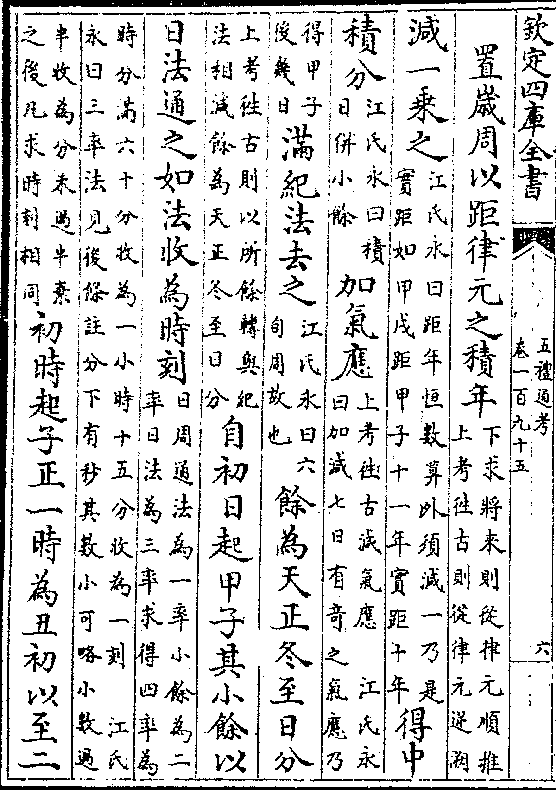 欽定四庫全書
五禮通考
卷一百九十五
六
置歲周以距律元之積年下求將來則從律元順推
上考往古則從律元逆溯
減一乘之江氏永曰距年恒數算外須減一乃是
實距如甲戌距甲子十一年實距十年得中
積分江氏永曰積
日併小餘加氣應上考往古減氣應 江氏永
曰加減七日有奇之氣應乃
得甲子
後幾日滿紀法去之江氏永曰六
旬周故也餘為天正冬至日分
上考往古則以所餘轉與紀
法相減餘為天正冬至日分自初日起甲子其小餘以
日法通之如法收為時刻日周通法為一率小餘為二
率日法為三率求得四率為
時分滿六十分收為一小時十五分收為一刻 江氏
永曰三率法見後條註分下有秒其數小可略小數過
半收為分未過半棄
之後凡求時刻相同初時起子正一時為丑初以至二